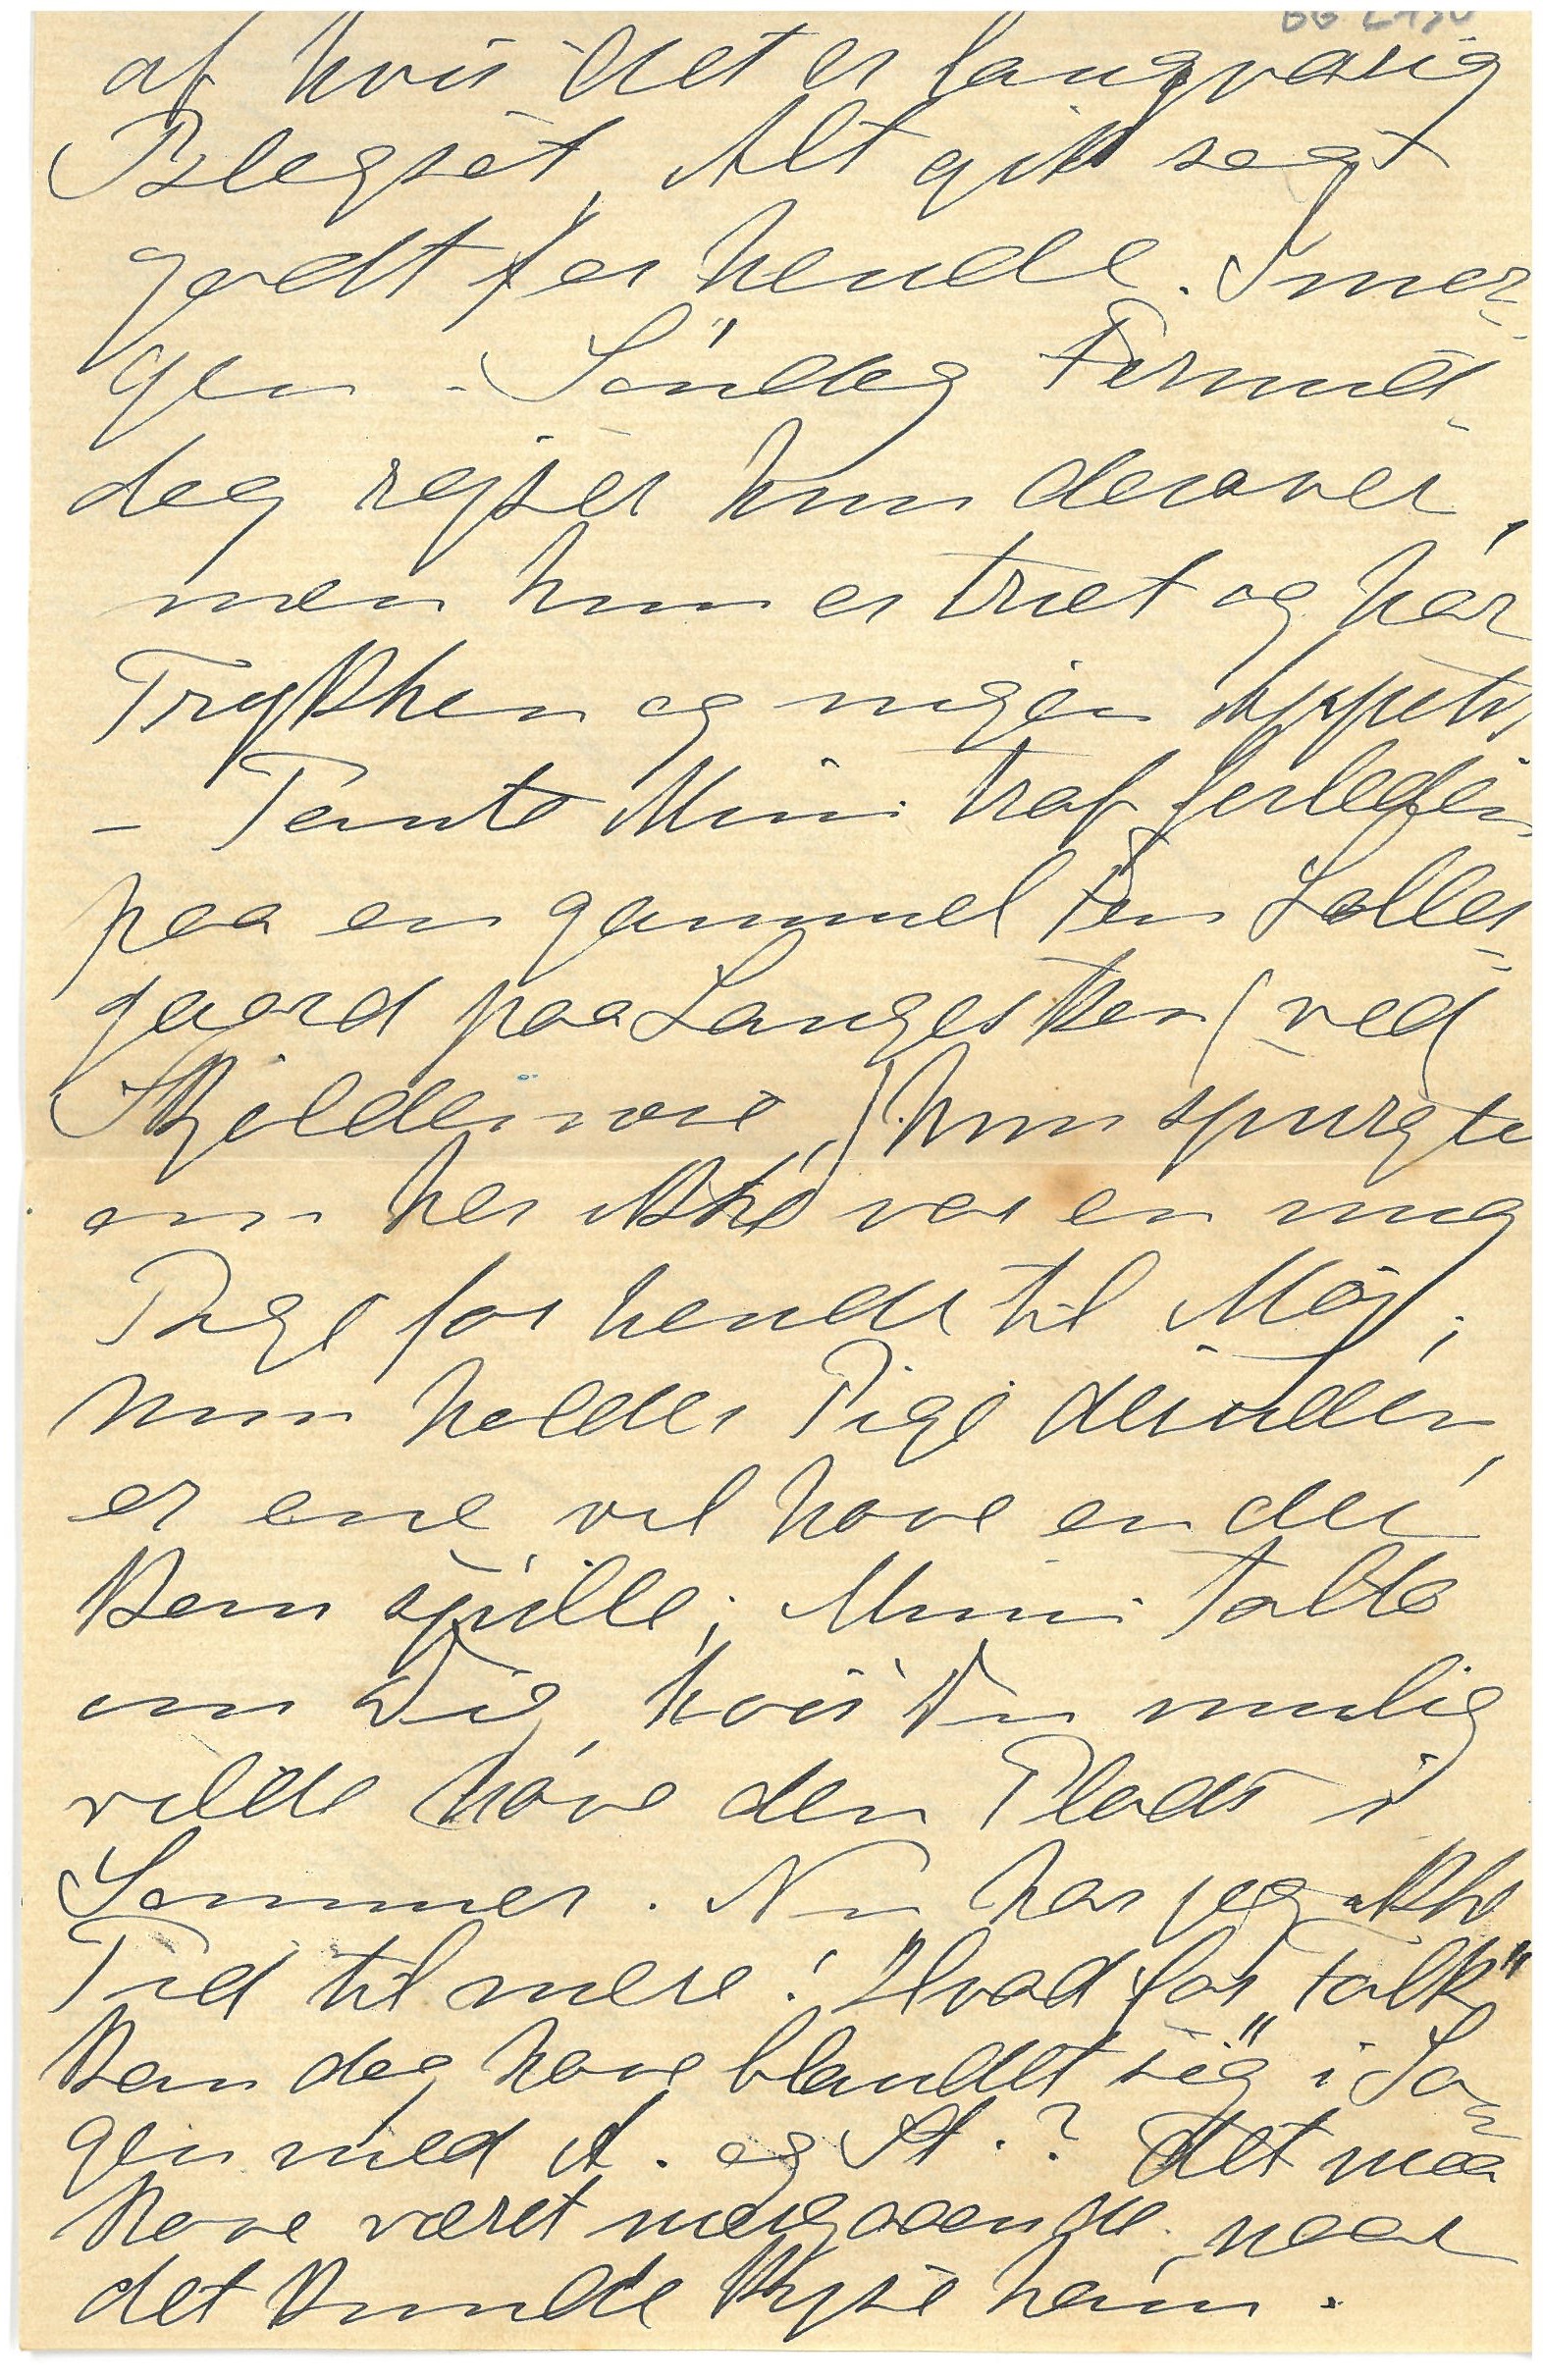 af hvis det er langvarig
Blegsot, Alt gik sagt
godt for hende. Imor-
gen - Söndag Formid-
dag rejser hun derover,
men hun er træt og har
Trykken og ingen Appetit,
- Tante Mimi traf forleden
paa en gammel Frk Lolle-
gaard paa Langesken (ved
Skjelderne,) hun spurgte
om her ikke var en ung
Pige for hende til Maj;
hun holder Pige desuden,
er ene, vil have en der
kan spille; Mimi talte
om Dig, hvis Du mulig
vilde have den Plads i
Sommer. Nu har jeg ikke
Tid til mere! Hvad for "Folk"
kan dog have blandet sig i Sa-
gen med A. og St.? det maa
have været nærgaaende naar
det kunde kyse ham.